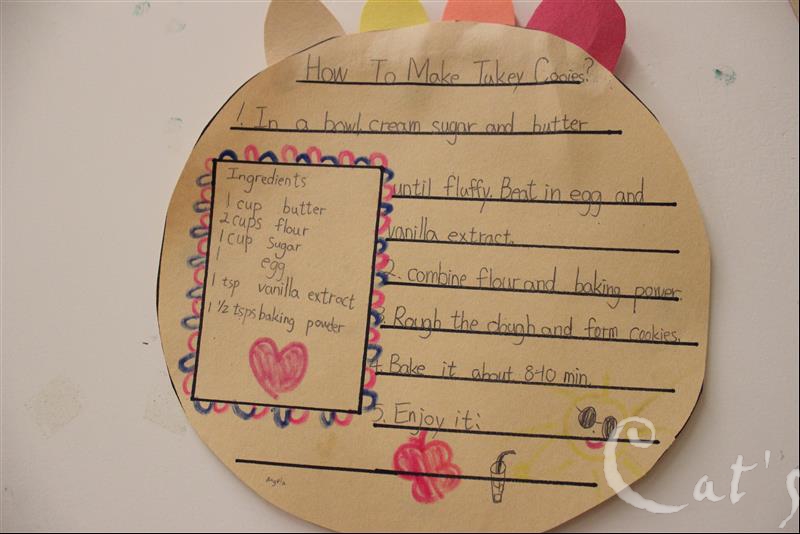 How To Make Tukey Cooies?
1. In a bowl, cream sugar and butter
until fluffy. Beat in egg and
vanilla extract.
2. combine flour and baking power
3. Rough the dough and form cookies.
4. Bake it about 8-10 min.
5. Enjoy it:
Ingredients
1 cup butter
2 cups flour
1 cup sugar
1 egg
1 tsp vanilla extract
1 1/2 tsps baking powder
Angela
Cat's